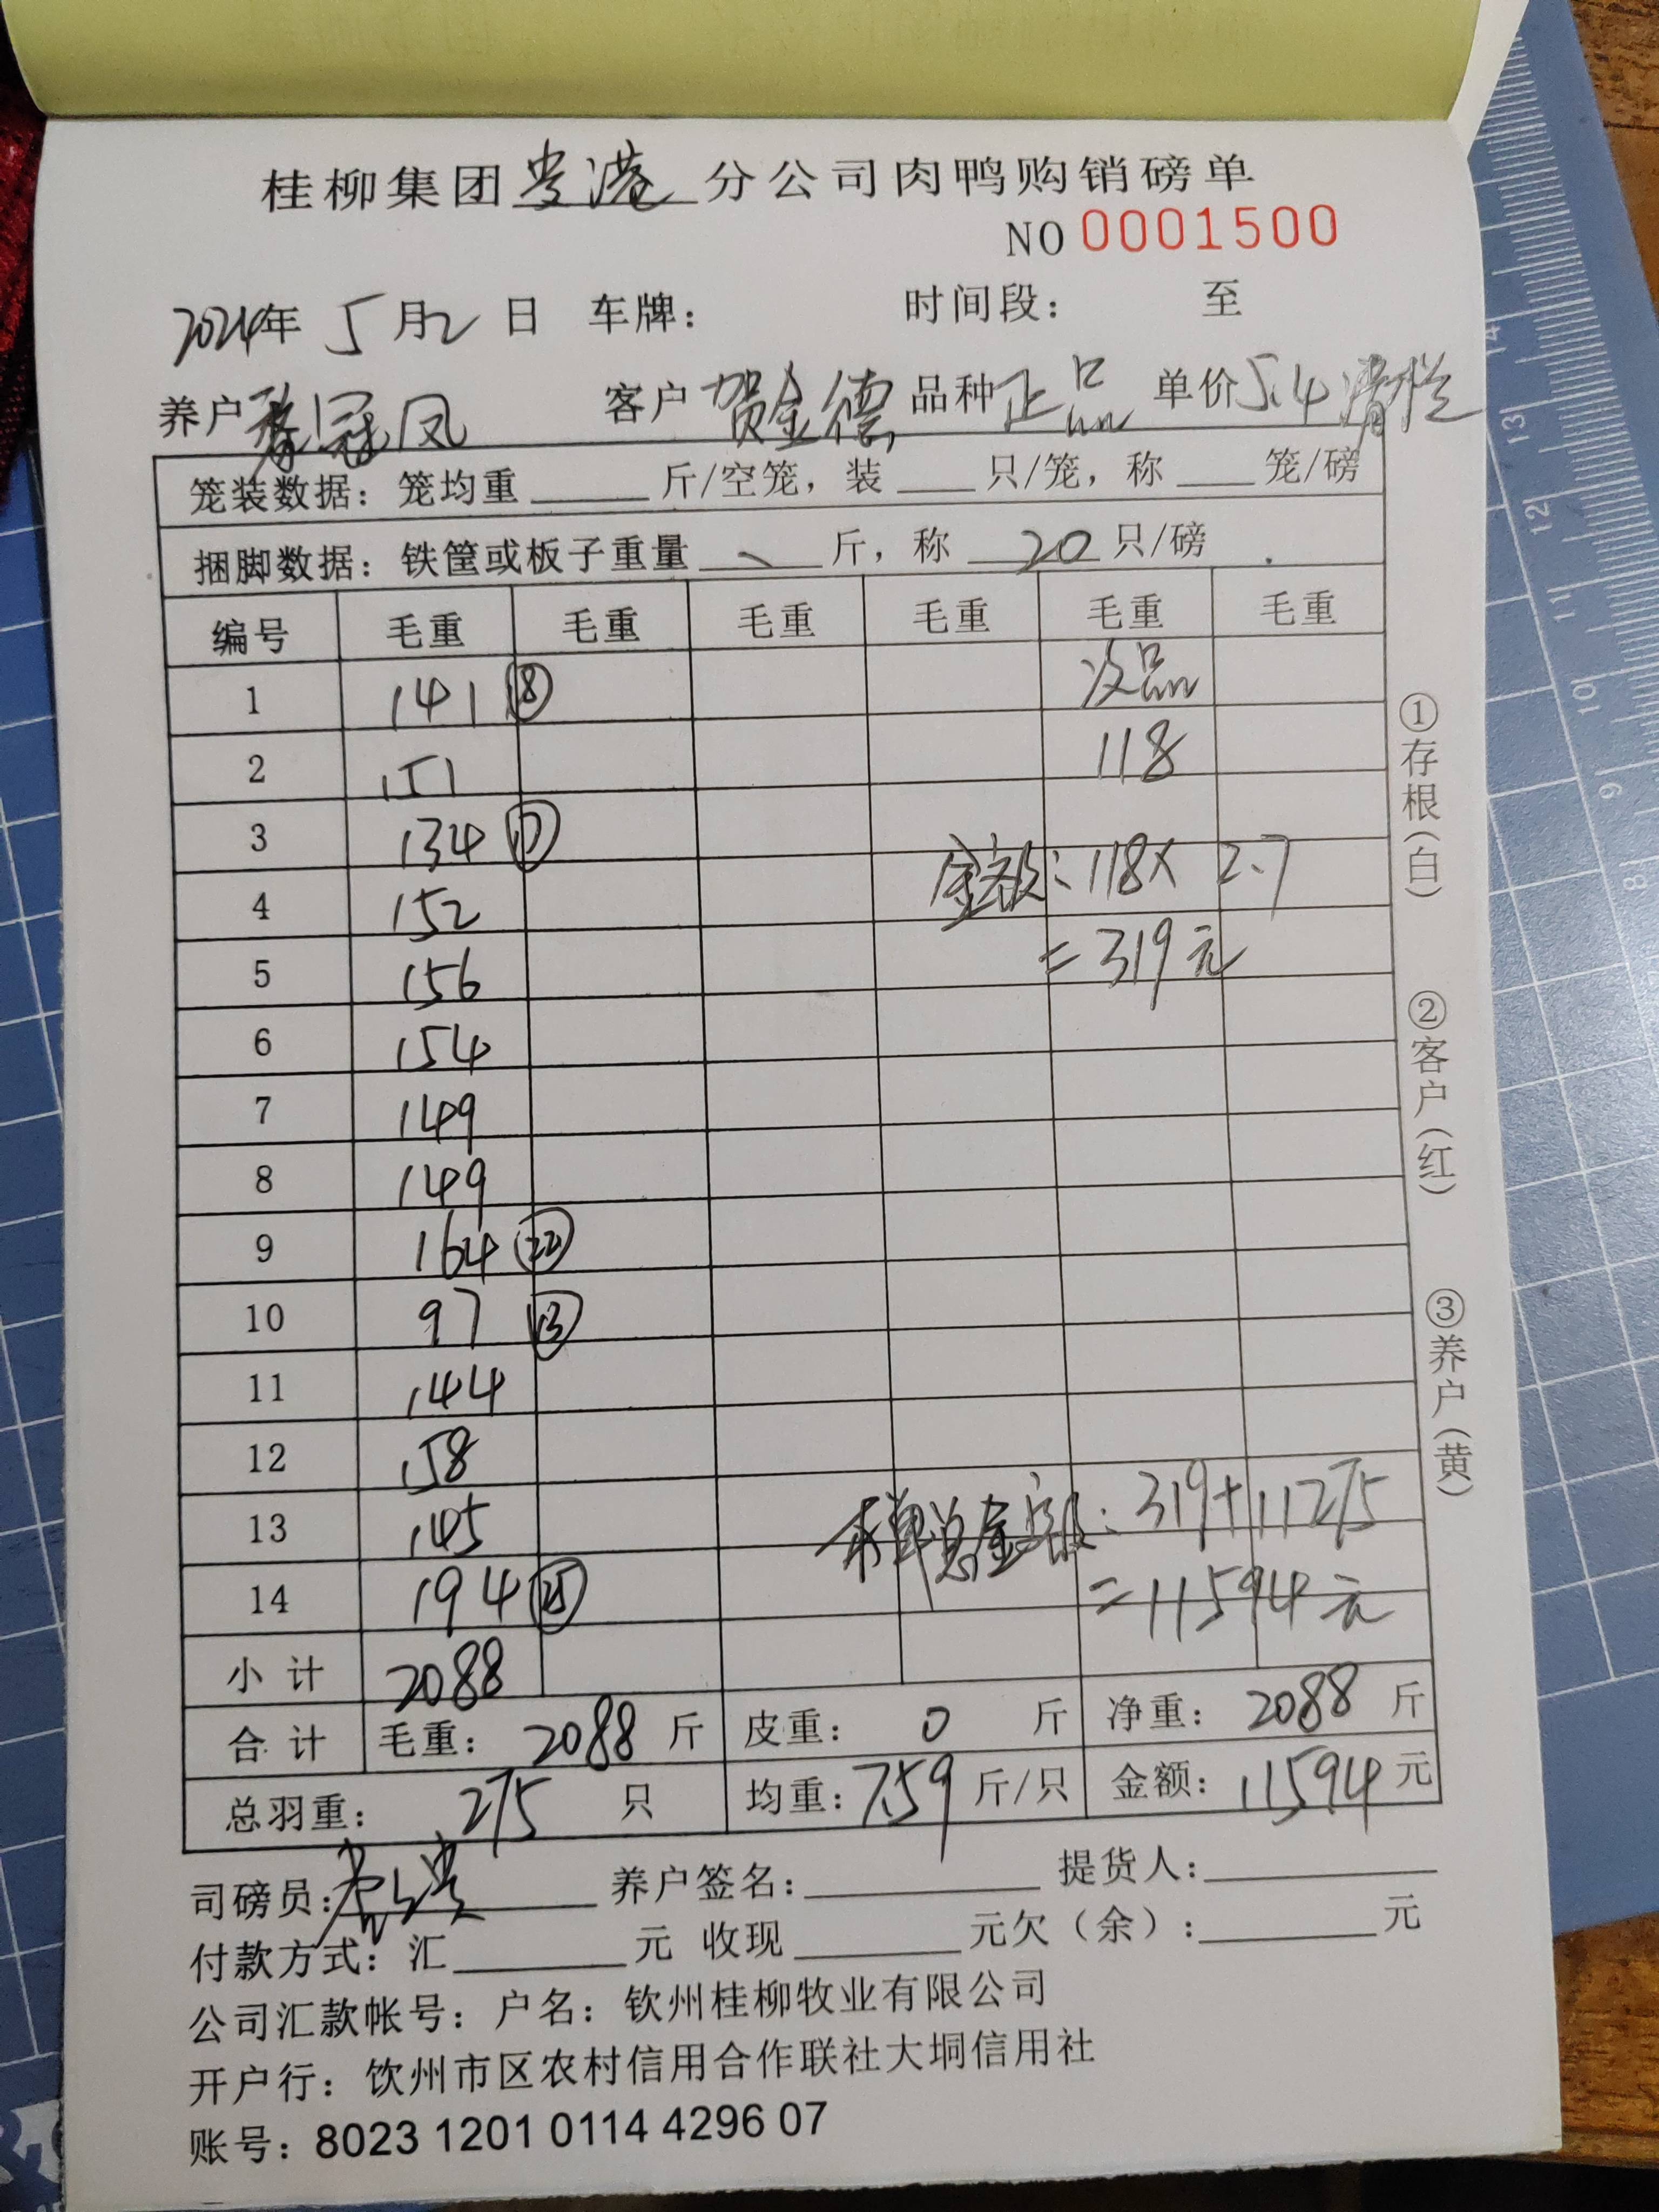 桂柳集团贵港分公司肉鸭购销磅单
NO 0001500
2024年 5月2日 车牌： 时间段： 至
养户 冠凤 客户 贺金德 品种 正品 单价 5.4 清栏
笼装数据：笼均重 斤/空笼，装 只/笼，称 笼/磅
捆脚数据：铁筐或板子重量 斤，称 20 只/磅
编号 毛重 毛重 毛重 毛重 毛重 毛重
1 141 ⑱ 次品
2 151 118
3 134 ⑰ 金额：118× 2.7
4 152
5 156 =319元
6 154
7 149
8 149
9 164 ㉒
10 97 ⑬
11 144
12 158
13 145 本单总金额：319+11275
14 194 ㉕ =11594元
小计 2088
合计 毛重：2088 斤 皮重：0 斤 净重：2088 斤
总羽重：275 只 均重：7.59 斤/只 金额：11594 元
司磅员： 养户签名： 提货人：
付款方式：汇 元 收现 元欠（余）： 元
公司汇款帐号：户名：钦州桂柳牧业有限公司
开户行：钦州市区农村信用合作联社大垌信用社
账号：8023 1201 0114 4296 07
①存根（白）
②客户（红）
③养户（黄）
14
13
12
11
10
9
8